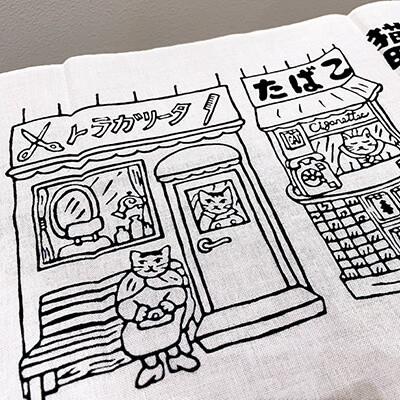 トラガリータ
たばこ
Cigarette
猫